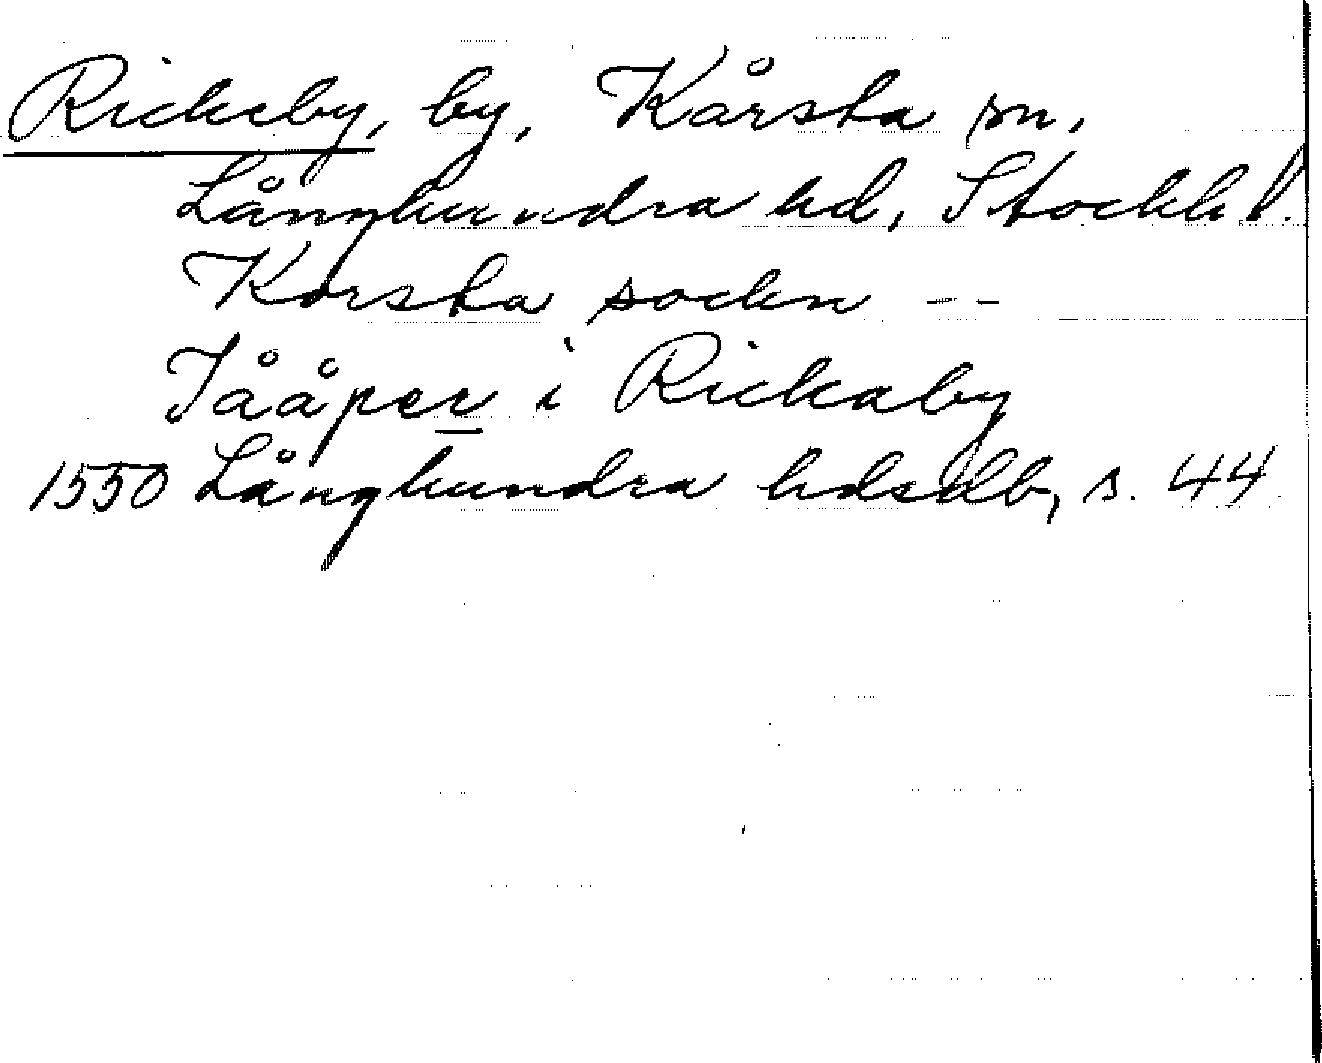 Rickeby, by, Kårsta sn,
Långhundra hd, Stockh l.
Korsta sockn --
Jååper i Rickaby
1550 Långhundra hdsdb, s. 44